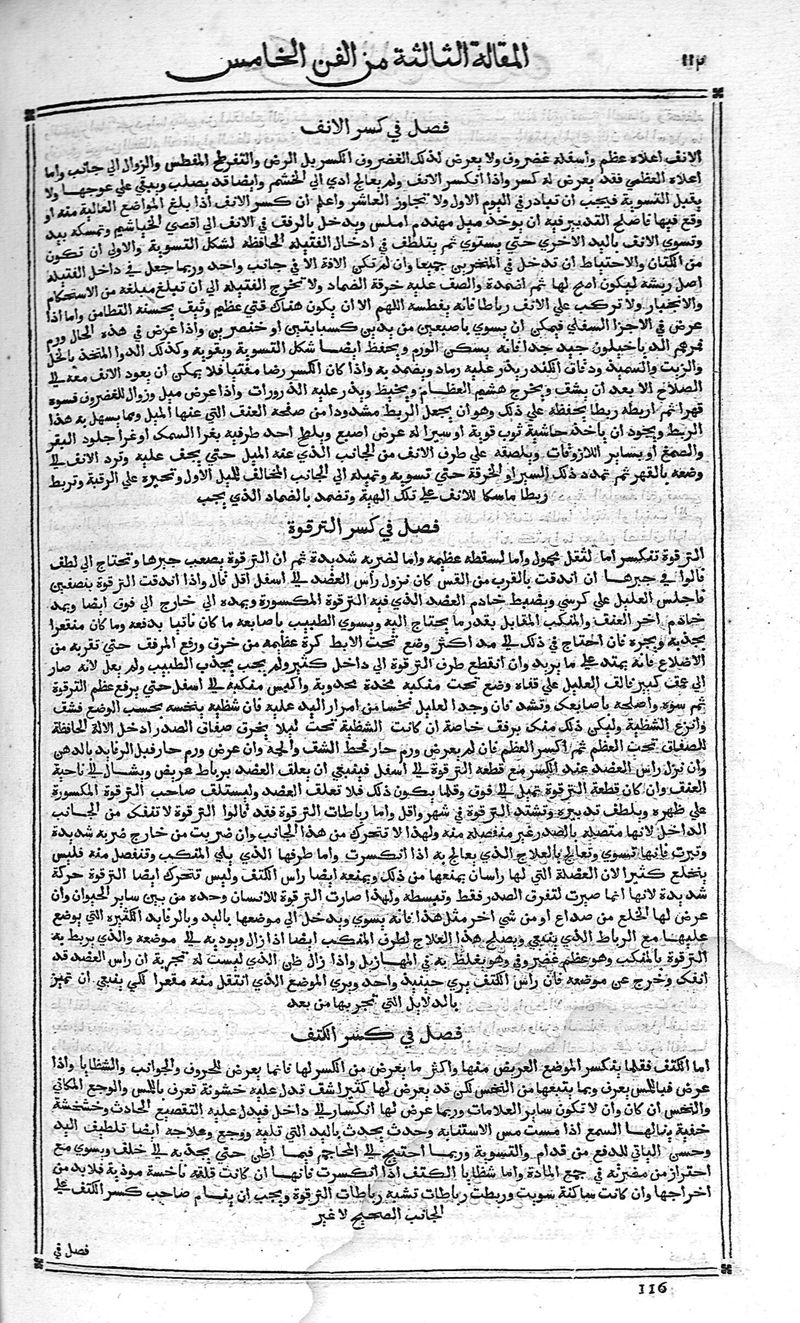 ١١٢
المقالة الثالثة من الفن الخامس
فصل في كسر الانف
الانف اعلاه عظم واسفله غضروف ولا يعرض لذلك الغضروف الكسر بل الرض والتفرطح المفطس والزوال الى جانب واما
اعلاه العظمي فقد يعرض له كسر واذا انكسر الانف ولم يعالج ادي الى الخشم وايضا قد يصلب ويبقي علي عوجها ولا
يقبل التسوية فيجب ان تبادر في اليوم الاول ولا تجاوز العاشر واعلم ان كسر الانف اذا بلغ المواضع العالية منه او
وقع فيها فاصلح التدبير فيه ان يوخذ ميل مهندم املس ويدخل بالرفق في الانف الى اقصي الخياشيم وتمسكه بيد
وتسوي الانف باليد الاخري حتي يستوي ثم يتلطف في ادخال الفتيلة الحافظة لشكل التسوية والاولى ان تكون
من الكتان والاحتياط ان تدخل في المنخرين جميعا وان لم تكن الافة الا في جانب واحد وربما جعل في داخل الفتيلة
اصل ريشة ليكون اصح لها ثم اضمدة والصق عليه خرقة الضماد ولا تخرج الفتيلة الى ان تبلغ مبلغه من الاستحكام
والانجبار ولا تركب علي الانف رباطا فانه يفطسه اللهم الا ان يكون هناك شي عظيم وثيف يحسنه التطامن واما اذا
عرض في الاجزا السفلي فيمكن ان يسوي باصبعين من يدين كسبابتين او خنصرين واذا عرض في هذه الحال ورم
فمرهم الدياخيلون جيد جدا فانه يسكن الورم ويحفظ ايضا شكل التسوية ويقويه وكذلك الدوا المتخذ بالخل
والزيت والسميد ودقاق الكندر يذر عليه رماد ويضمد به واذا كان الكسر رضا مفتتا فلا يمكن ان يعود الانف معه الى
الصلاح الا بعد ان يشق ويخرج هشيم العظام ويخيط ويذر عليه الذرورات واذا عرض ميل وزوال للغضروف فسوه
قهرا ثم اربطه ربطا يحفظه علي ذلك وهو ان يجعل الربط مشدودا من صفحة العنف التي عنها الميل ومما يسهل به هذا
الربط ويجود ان ياخذ حاشية ثوب قوية او سيرا له عرض اصبع ويلطخ احد طرفيه بغرا السمك او غرا جلود البقر
والصمغ او بساير اللازوقات ويلصقه علي طرف الانف من الجانب الذي عنه الميل حتي يجف عليه وترد الانف الى
وضعه بالقهر ثم تمدد ذلك السير او الخرقة حتي تسويه وتميله الى الجانب المخالف للميل الاول وتحيره علي الرقبة وتربط
ربطا ماسكا للانف علي تلك الهية وتضمد بالضماد الذي يجب
فصل في كسر الترقوة
الترقوة تنكسر اما لثقل محمول واما لسقطه عظيمة واما لضربه شديدة ثم ان الترقوة يصعب جبرها وتحتاج الى لطف
قالوا في جبرها ان اندقت بالقرب من القس كان نزول راس العضد الى اسفل اقل قال واذا اندقت الترقوة بنصفين
فاجلس العليل علي كرسي ويضبط خادم العضد الذي فيه الترقوة المكسورة ويمده الى خارج الى فوق ايضا ويمد
خادم اخر العنف والمنكب المقابل بقدر ما يحتاج اليه ويسوي الطبيب باصابعه ما كان ناتيا يدفعه وما كان منقعرا
يجذبه ويجره فان احتاج في ذلك الى مد اكثر وضع تحت الابط كرة عظيمة من خرق ورفع المرفق حتي تقربه من
الاضلاع فانه يمتد علي ما يريد وان انقطع طرف الترقوة الى داخل كثير ولم يجب بجذب الطبيب ولم يعل لانه صار
الى عمق كبير فالق العليل علي قفاه وضع تحت منكبيه مخدة محدوبة واكبس منكبه الى اسفل حتي يرفع عظم الترقوة
ثم سوه واصلحه باصابعك وتشد فان وجد العليل نخسا من امرار اليد عليه فان شظية ينخسه بحسب الوضع فشق
وانزع الشظية وليكن ذلك منك برفق خاصة ان كانت الشظية تحت ليلا يخرق صفاق الصدر ادخل الالة الحافظة
للصفاق تحت العظم ثم اكسر العظم فان لم يعرض ورم حار فخط الشق والحمه وان عرض ورم حار فبل الرفايد بالدهن
وان نزل راس العضد عند الكسر مع قطعة الترقوة الى اسفل فينبغي ان يعلق العضد برباط عريض ويشال الى ناحية
العنف وان كان قطعة الترقوة تميل الى فوق وقلما يكون ذلك فلا تعلق العضد وليستلق صاحب الترقوة المكسورة
علي ظهره ويلطف تدبيره وتشتد الترقوة في شهر واقل واما رباطات الترقوة فقد قالوا الترقوة لا تنفك من الجانب
الداخل لانها متصله بالصدر غير منفصلة منه ولهذا لا تتحرك من هذا الجانب وان ضربت من خارج ضربه شديدة
وتبرت فانها تسوي وتعالج بالعلاج الذي يعالج به اذا انكسرت واما طرفها الذي يلي المنكب وتنفصل منه فليس
يتخلع كثيرا لان العضلة التي لها راسان يمنعها من ذلك ويمنعه ايضا راس الكتف وليس تتحرك ايضا الترقوة حركة
شديدة لانها انما صيرت لتفرق الصدر فقط وتبسطه ولهذا صارت الترقوة للانسان وحده من بين ساير الحيوان وان
عرض لها الخلع من صداع او من شي اخر مثل هذا فانه يسوي ويدخل الى موضعها باليد وبالرفايد الكثيره التي يوضع
عليها مع الرباط الذي ينبغي ويصلح هذا العلاج لطرف المنكب ايضا اذا زال ويودبه الى موضعه والذي يربط به
الترقوة بالمنكب وهو عظم غضروفي وهو يغلظ به في المهازيل واذا زال ظن الذي ليست له تجربة ان راس العضد قد
انفك وخرج عن موضعه فان راس الكتف يري حينيذ واحد ويري الموضع الذي انتقل منه مقعرا لكي ينبغي ان تميز
بالدلايل التي تجربها من بعد
فصل في كسر الكتف
اما الكتف فقلما ينكسر الموضع العريض منها واكثر ما يعرض من الكسر لها فانما يعرض للحروف والجوانب والشظايا واذا
عرض فباللمس يعرف وبما يتبعها من النخس لكن قد يعرض لها كثيرا شق تدل عليه خشونة تعرف باللمس والوجع المكاني
والنخس ان كان وان لا تكون ساير العلامات وربما عرض لها انكسار الى داخل فيدل عليه التقصيع الحادث وخشخشة
خفية ينالها السمع اذا مست مس الاستثبانه وحدث يحدث باليد التي تليه ووجع وعلاجه ايضا تلطيف اليد
وحسن الباتي للدفع من قدام والتسوية وربما احتيج الى المحاجم فيما اظن حتي يجذبه الى خلف ويسوي مع
احتراز من مضرته في جمع المادة واما شظايا الكتف اذا انكسرت فانها ان كانت قلقة ناخسة موذية فلا بد من
اخراجها وان كانت ساكنة سويت وربطت رباطات تشبه رباطات الترقوة ويجب ان ينام صاحب كسر الكتف علي
الجانب الصحيح لا غير
فصل في
116